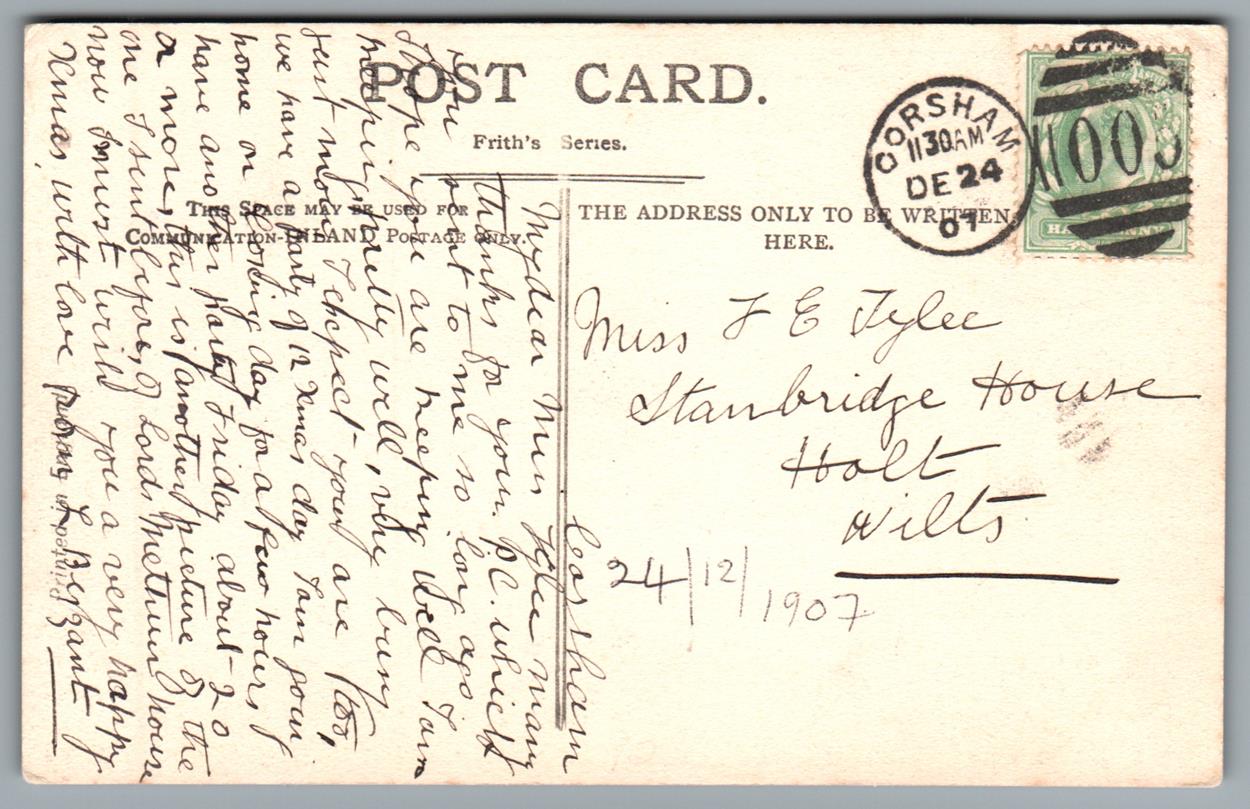 POST CARD.
Frith's Series.
THIS SPACE MAY BE USED FOR
COMMUNICATION-INLAND POSTAGE ONLY.
THE ADDRESS ONLY TO BE WRITTEN
HERE.
CORSHAM
1130AM
DE 24
07
HALFPENNY
Miss F E Tylee
Stanbridge House
Holt
Wilts
24/12/1907
Corsham
My dear Miss Tylee Many
thanks for your PC. which
you sent to me so long ago
I hope you are keeping well I am
keeping fairly well, very busy
just now, I expect you are too,
we have a party of 12 Xmas day I am going
home on Boxing day for a few hours
have another party Friday about 20
or more, this is another picture of the
one I sent before, of Lord Methuen house
now I must wish you a very happy
Xmas with love from L Bezzant
Printed in